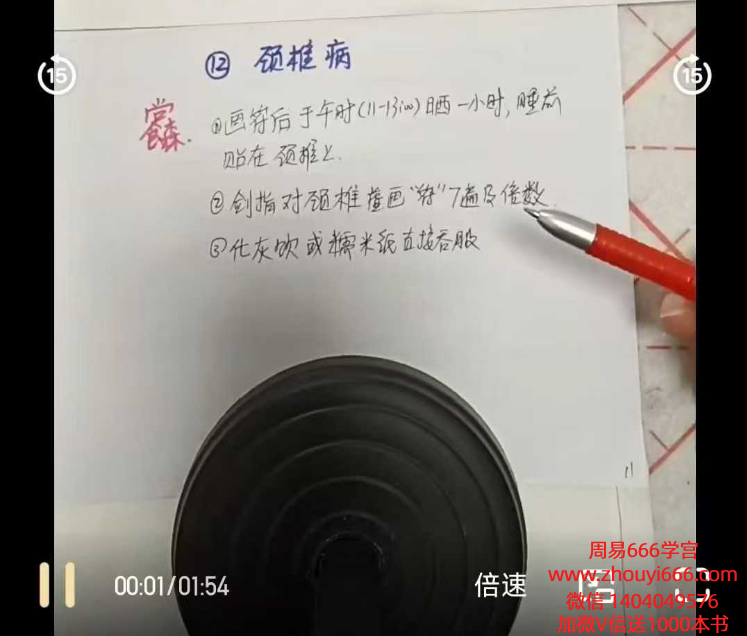 ⑫ 颈椎病
15
15
①画符后于午时(11-13:00)日晒一小时,睡前
贴在颈椎上.
②剑指对颈椎虚画"符"7遍及倍数.
③化灰饮或糯米纸直接吞服
11
00:01/01:54
倍速
周易666学宫
www.zhouyi666.com
微信 1404049576
加微V信送1000本书